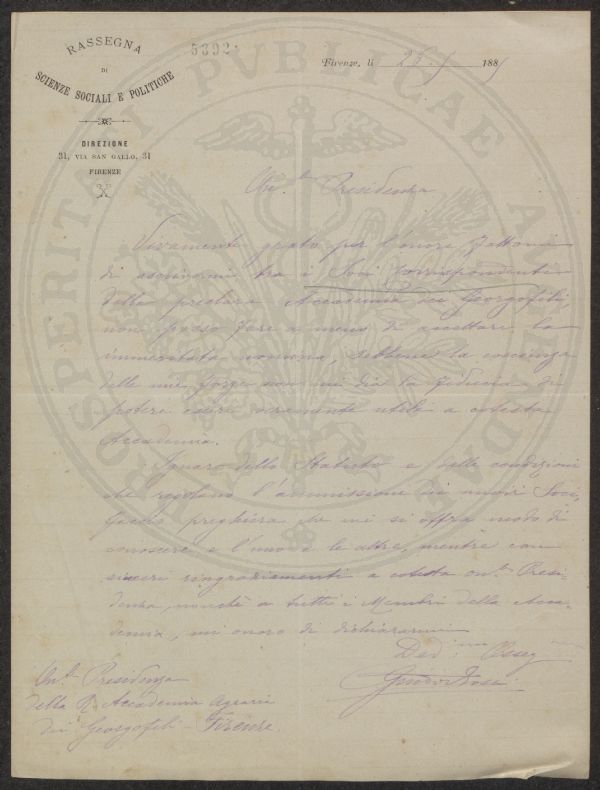 RASSEGNA
DI
SCIENZE SOCIALI E POLITICHE
DIREZIONE
31, VIA SAN GALLO, 31
FIRENZE
5392
Firenze, li 25. 5 1885
On.le Presidenza
Vivamente grato per l'onore fattomi
di ascrivermi tra i Soci Corrispondenti
della preclara Accademia dei Georgofili,
non posso fare a meno di accettare la
immeritata nomina, sebbene la coscienza
delle mie forze non mi dia la fiducia di
potere essere veramente utile a cotesta
Accademia.
Ignaro dello Statuto e delle condizioni
che regolano l'ammissione dei nuovi Soci,
faccio preghiera che mi si offra modo di
conoscere e l'uno e le altre, mentre con
sinceri ringraziamenti a cotesta on.le Presi-
denza, nonchè a tutti i Membri della Acca-
demia, mi onoro di dichiararmi
Dev.mo Osseq.mo
On.le Presidenza
della R. Accademia Agraria
dei Georgofili - Firenze
PROSPERITATI PUBLICAE AUGENDAE